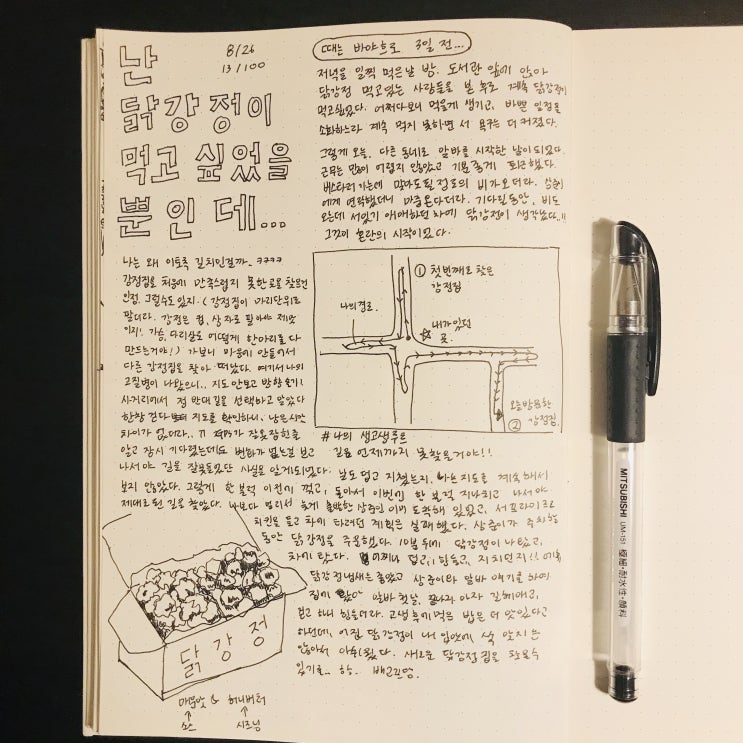 난
닭강정이
먹고 싶었을
뿐인데...
8/26
13/100
때는 바야흐로 3일 전...
저녁을 일찍 먹은날 밤. 도서관 앞에 앉아
닭강정 먹고있는 사람들을 본 후로 계속 닭강정이
먹고싶었다. 어쩌다보니 먹을게 생기고, 바쁜 일정을
소화하느라 계속 먹지 못하면서 욕구는 더 커졌다.
그렇게 오늘. 다른 동네로 알바를 시작한 날이 되었다.
근무는 많이 어렵지 않았고 기분좋게 퇴근했다.
버스타러 가는데 말도 안될 정도의 비가 오더라. 상준이
에게 연락했더니 마중온다더라. 기다릴동안, 비도
오는데 서있기 애매하던 차에 닭강정이 생각났다..!!
그것이 혼란의 시작이었다.
나는 왜 이토록 길치인걸까.. ㅋㅋㅋㅋ
강정집을 처음에 만족스럽지 못한곳을 찾았던
인정. 그럴수도 있지. (강정집이 마리단위로
팔더라. 강정은 컵, 상자로 팔아야 제맛
이지! 가슴, 다리살로 어떻게 한마리를 다
만드는거야!) 가보니 마음에 안들어서
다른 강정집을 찾아 떠났다. 여기서 나의
고질병이 나왔으니.. 지도 안보고 방향 옮기!
사거리에서 정 반대길을 선택하고 말았다
한참 걷다 지도를 확인하니, 남은시간
차이가 없더라.. 기 GPS가 잘못잡힌줄
알고 잠시 기다렸는데도 변화가 없는걸 보고
나서야 길을 잘못들었단 사실을 알게되었다. 날도 덥고 지쳤는지, 나는 지도를 계속해서
보지 않았다. 그렇게 한 블럭 이전에 꺾고, 돌아서 이번엔 한 블럭 지나치고 나서야
제대로된 길을 찾았다. 나보다 멀리서 늦게 출발한 상준인 이미 도착해 있었고, 서프라이즈로
치킨을 들고 차에 타려던 계획은 실패했다. 상준이가 주차할
동안 닭강정을 주문했다. 10분 뒤에 닭강정이 나왔고,
차에 탔다. 어찌나 덥고, 힘들고, 지치던지!!
닭강정 냄새는 좋았고 상준이와 알바 얘기를 하며
집에 왔다 알바 첫날, 끝나자 마자 길헤매고,
걷고 하니 힘들더라. 고생 후에 먹은 밥은 더 맛있다고
하던데. 어찐 닭강정이 내 입맛에 썩 맞지는
않아서 아쉬웠다. 새로운 닭강정 집을 찾을수
있기를.. 하.. 배고프당.
① 첫번째로 찾은
강정집
나의경로.
내가있던
곳.
오늘 방문한
② 강정집
#나의 생고생루트
길을 언제까지 못찾을거야!!
닭강정
매운맛 & 허니버터
↑ ↑
소스 시즈닝
MITSUBISHI UM-151 極細・耐水性・顔料